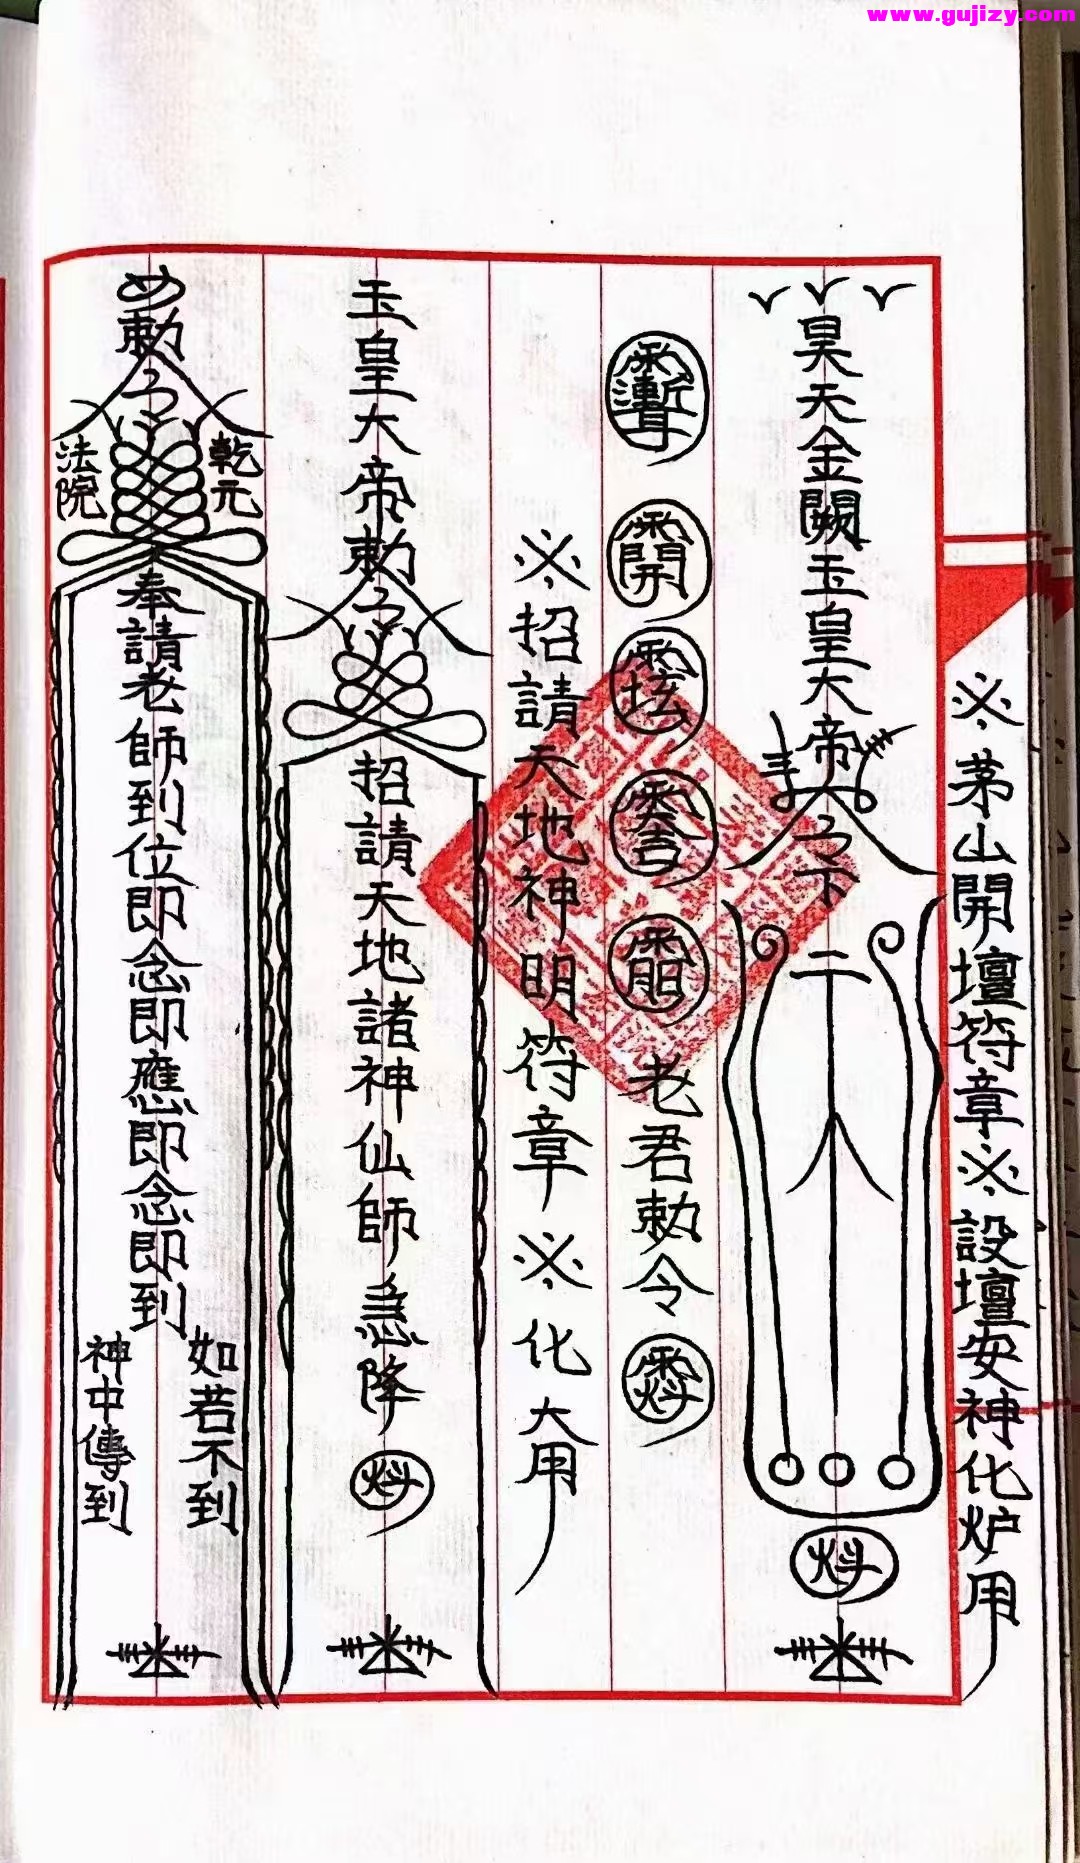 www.gujizy.com
※茅山開壇符章※設壇安神化炉用
昊天金闕玉皇大帝
下
老君勅令
※招請天地神明符章※化大用
玉皇大帝勅令
招請天地諸神仙師急降
勅令
乾元
法院
奉請老師到位即念即應即念即到
如若不到
神中傳到